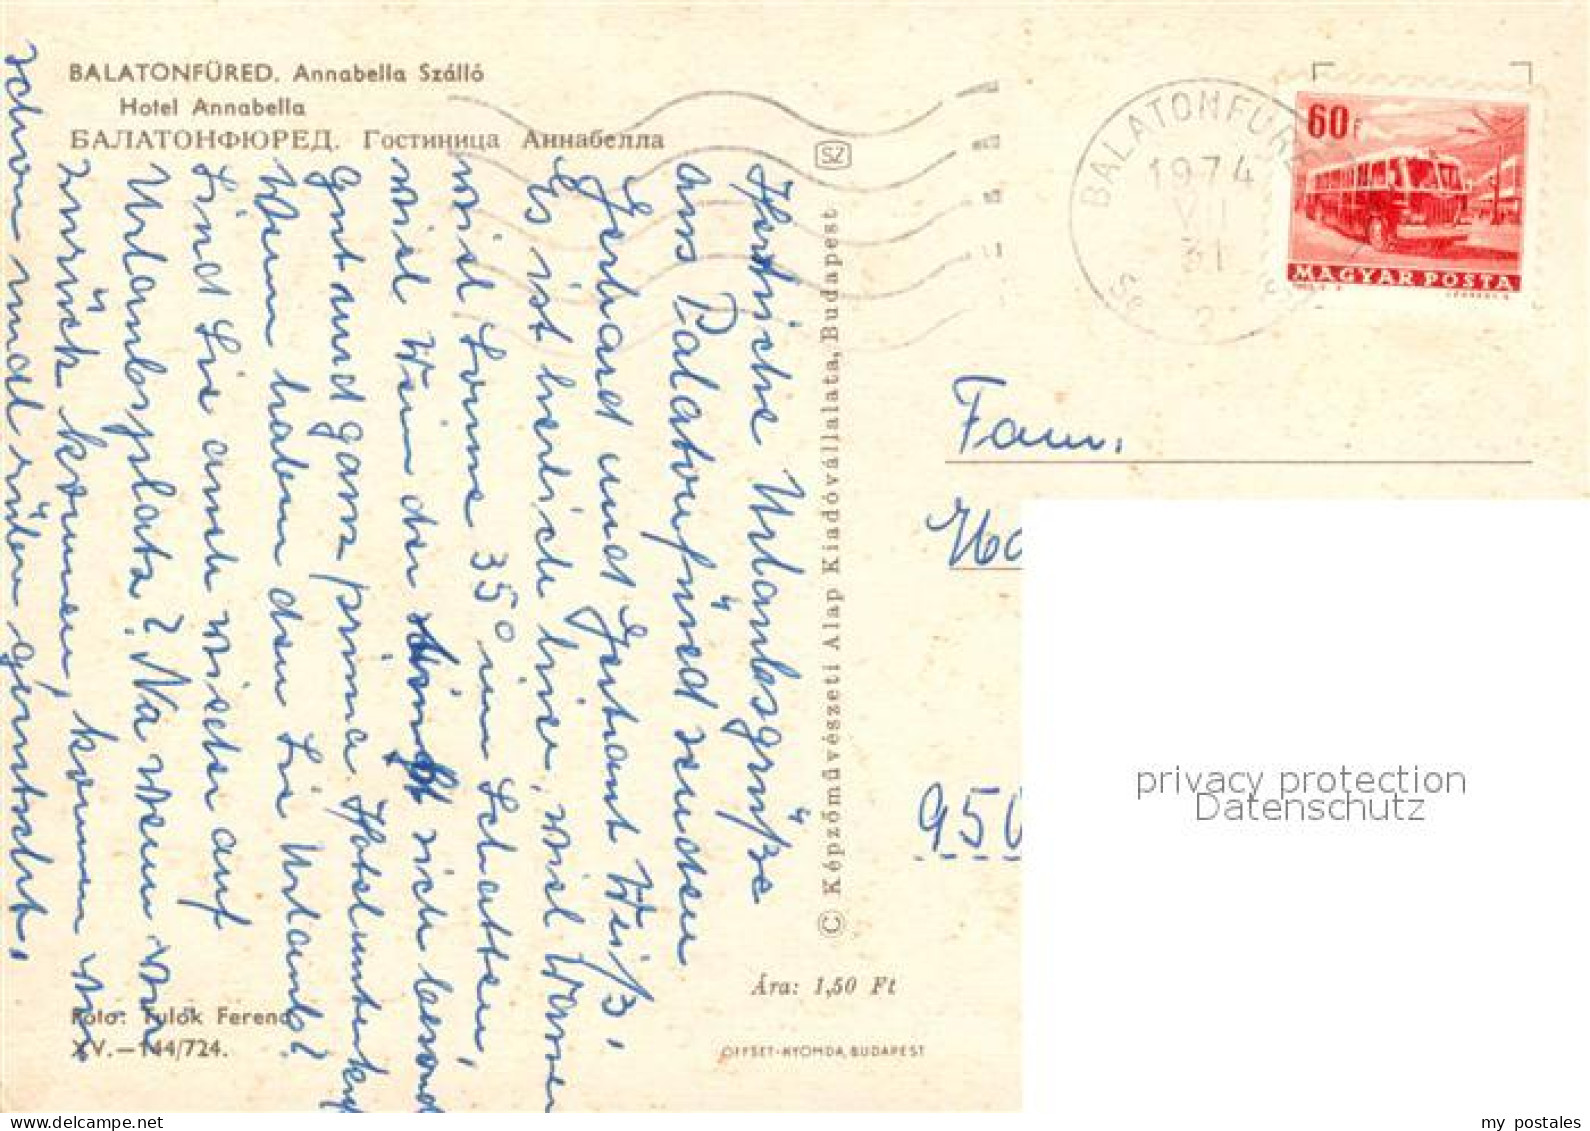 BALATONFÜRED. Annabella Szálló
Hotel Annabella
БАЛАТОНФЮРЕД. Гостиница Аннабелла
SZ
BALATONFÜRED
1974
VII
31
2
60f
MAGYAR POSTA
Herzliche Urlaubsgrüße
aus Balatonfüred senden
Gerhard und Gertraut Weiß.
Es ist herlich hier, viel Wasser
viel Sonne 35° im Schatten,
viel Wein der sich besond
gut und ganz prima Hotelunterk
Wann haben den Sie Urlaub?
Sind Sie auch wieder auf
Urlaubsplatz? Na wenn wir
zurück kommen, kommen wir
schon mal rüber gerutscht.
© Képzőművészeti Alap Kiadóvállalata, Budapest
Fam.
950
privacy protection
Datenschutz
Ára: 1,50 Ft
Foto: Tulok Ferenc
XV.—144/724.
OFFSET-NYOMDA, BUDAPEST
my postales